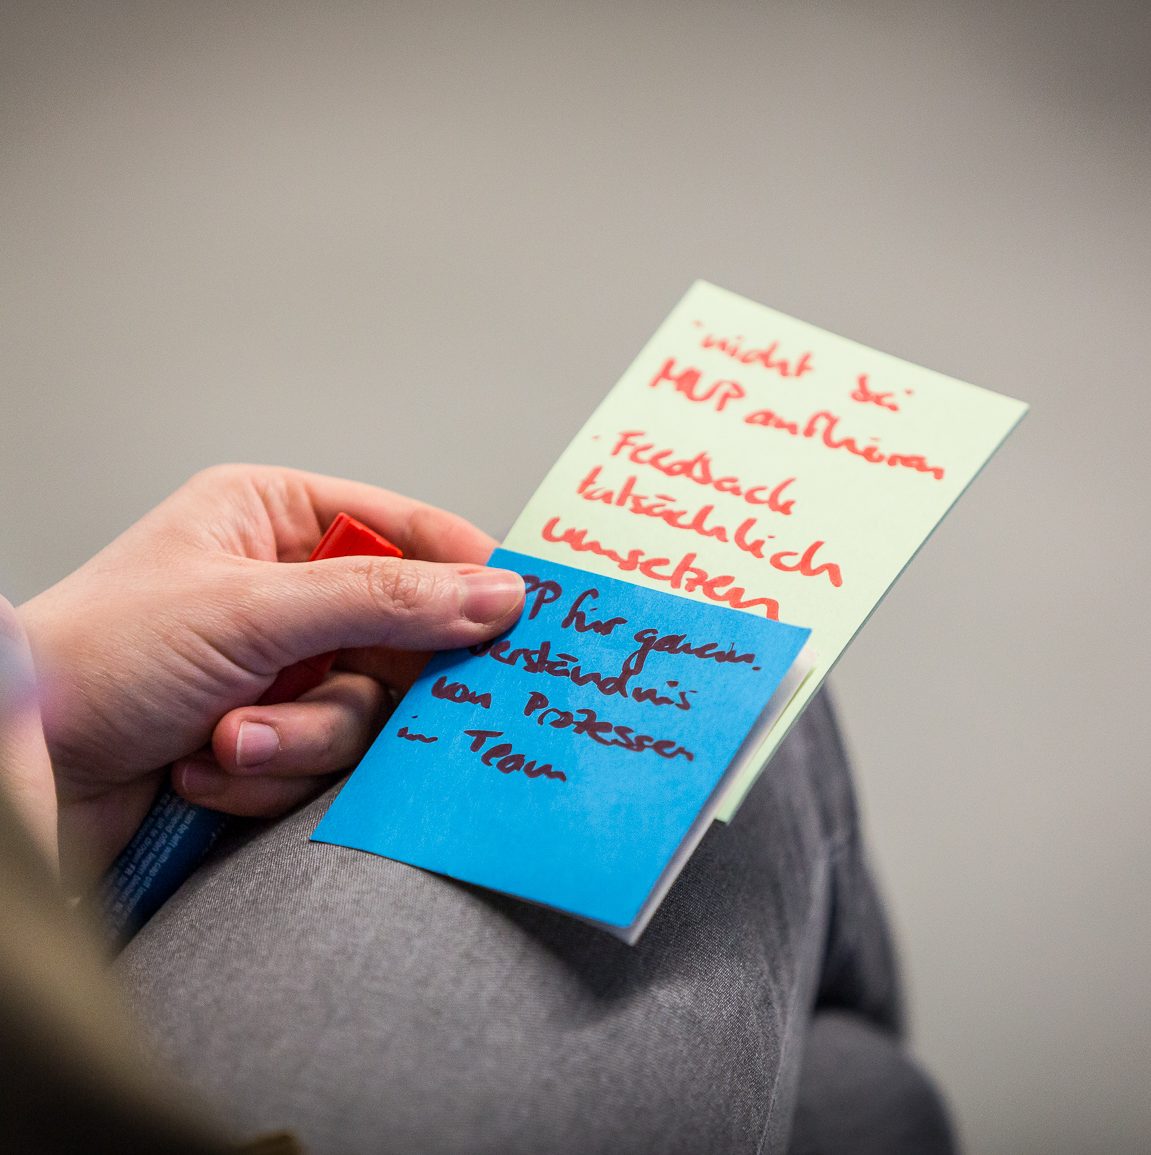 · nicht bei
MVP aufhören
· Feedback
tatsächlich
umsetzen
für gemein.
verständnis
von Prozessen
in Team